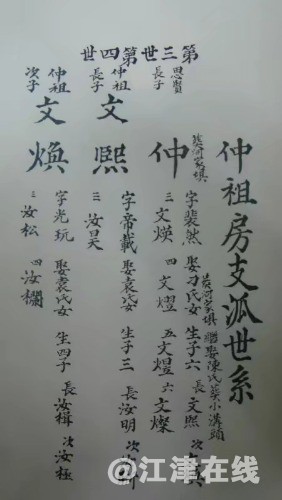 第三世第四世
仲祖房支派世系
恩賢
長子
仲
葬河家填
字裴然 娶刁氏女 生子六 長文熙 次文
葬河家填 繼娶陳氏葬小溝頭
三文煐 四文熠 五文煜 六文燦
仲祖
長子
文熙
字帝載 娶袁氏女 生子三 長汝明 次汝
三汝昊
仲祖
次子
文煥
字光玩 娶袁氏女 生四子 長汝楫 次汝極
三汝松 四汝欄
@江津在线